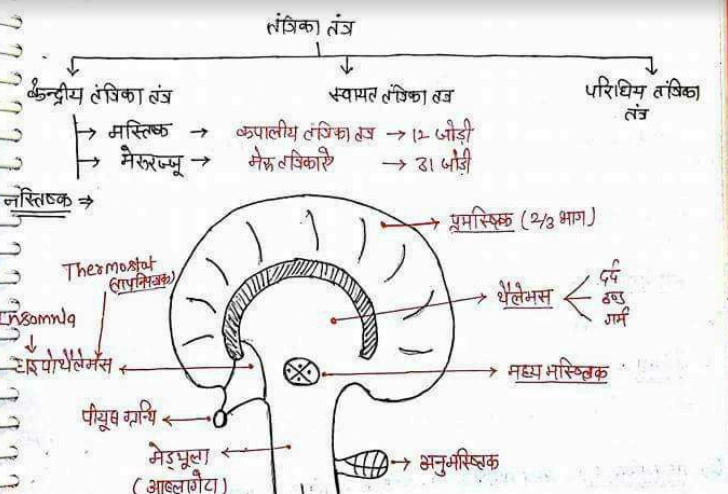 तंत्रिका तंत्र
केन्द्रीय तंत्रिका तंत्र स्वायत तंत्रिका तंत्र परिधिय तंत्रिका तंत्र
→ मस्तिक → कपालीय तंत्रिका तंत्र → 12 जोड़ी
→ मेरूरज्जू → मेरू तंत्रिकाऐ → 31 जोड़ी
मस्तिष्क ⇒
→ प्रमस्तिष्क (2/3 भाग)
Thermostat
(तापनियंत्रक)
थैलेमस
दर्द
ठण्ड
गर्म
Insomnia
हाइपोथैलेमस
मध्य मस्तिष्क
पीयूष ग्रन्थि
मेड्यूला
(आब्लागेटा)
अनुमस्तिष्क